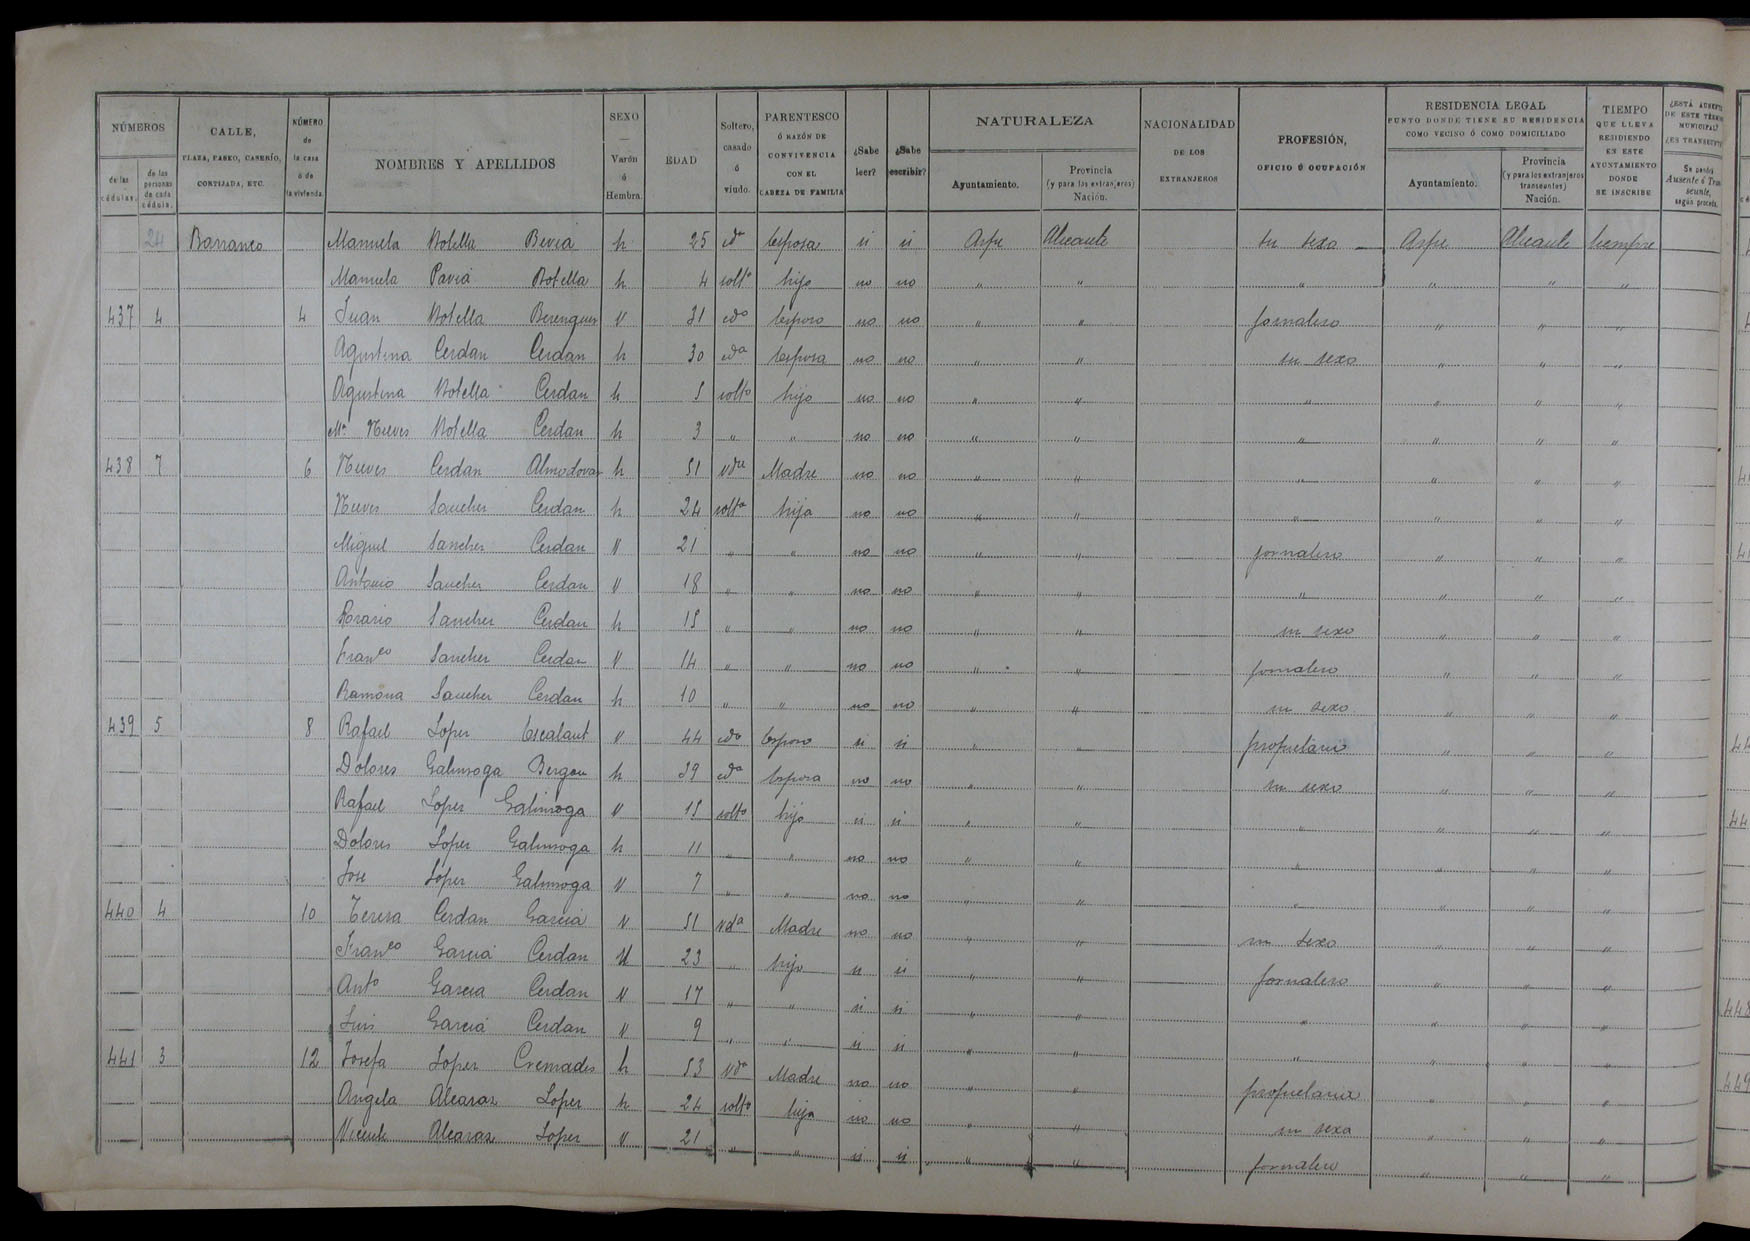 NÚMEROS
de las cédulas.
de las personas de cada cédula.
CALLE, PLAZA, PASEO, CASERÍO, CORTIJADA, ETC.
NÚMERO de la casa ó de la vivienda.
NOMBRES Y APELLIDOS
SEXO — Varón ó Hembra.
EDAD
Soltero, casado ó viudo.
PARENTESCO Ó RAZÓN DE CONVIVENCIA CON EL CABEZA DE FAMILIA
¿Sabe leer?
¿Sabe escribir?
NATURALEZA
Ayuntamiento.
Provincia (y para los extranjeros) Nación.
NACIONALIDAD DE LOS EXTRANJEROS
PROFESIÓN, OFICIO Ú OCUPACIÓN
RESIDENCIA LEGAL
PUNTO DONDE TIENE SU RESIDENCIA COMO VECINO Ó COMO DOMICILIADO
Ayuntamiento.
Provincia (y para los extranjeros transeuntes) Nación.
TIEMPO QUE LLEVA RESIDIENDO EN ESTE AYUNTAMIENTO DONDE SE INSCRIBE
¿ESTÁ AUSENTE DE ESTE TÉRMINO MUNICIPAL?
24 Barranco Manuela Botella Bevia h 25 cda Esposa si si Aspe Alicante su sexo Aspe Alicante Siempre
Manuela Pavia Botella h 4 solto hijo no no " " " " " "
437 4 4 Juan Botella Berenguer V 31 cdo Esposo no no " " jornalero " " "
Agustina Cerdan Cerdan h 30 cda Esposa no no " " su sexo " " "
Agustina Botella Cerdan h 5 solto hijo no no " " " " " "
Mª Nieves Botella Cerdan h 3 " " no no " " " " " "
438 7 6 Nieves Cerdan Almodovar h 51 vda Madre no no " " " " " "
Nieves Sanches Cerdan h 24 solta hija no no " " " " " "
Miguel Sanches Cerdan V 21 " " no no " " jornalero " " "
Antonio Sanches Cerdan V 18 " " no no " " " " " "
Rosario Sanches Cerdan h 15 " " no no " " su sexo " " "
Franco Sanches Cerdan V 14 " " no no " " jornalero " " "
Ramona Sanches Cerdan h 10 " " no no " " su sexo " " "
439 5 8 Rafael Lopes Escalant V 44 cdo Esposo si si " " propietario " " "
Dolores Galinsoga h 39 cda Esposa no no " " su sexo " " "
Rafael Lopes Galinsoga V 15 solto hijo si si " " " " " "
Dolores Lopes Galinsoga h 11 " " no no " " " " " "
Jose Lopes Galinsoga V 7 " " no no " " " " " "
440 4 10 Teresa Cerdan Garcia V 51 vda Madre no no " " su sexo " " "
Franco Garcia Cerdan V 23 " hijo si si " " jornalero " " "
Anto Garcia Cerdan V 17 " " si si " " " " " "
Luis Garcia Cerdan V 9 " " si si " " " " " "
441 3 12 Josefa Lopes Cremades h 53 vda Madre no no " " propietaria " " "
Angela Alcaraz Lopes h 24 solto hija no no " " su sexo " " "
Vicente Alcaraz Lopes V 21 " " si si " " jornalero " " "